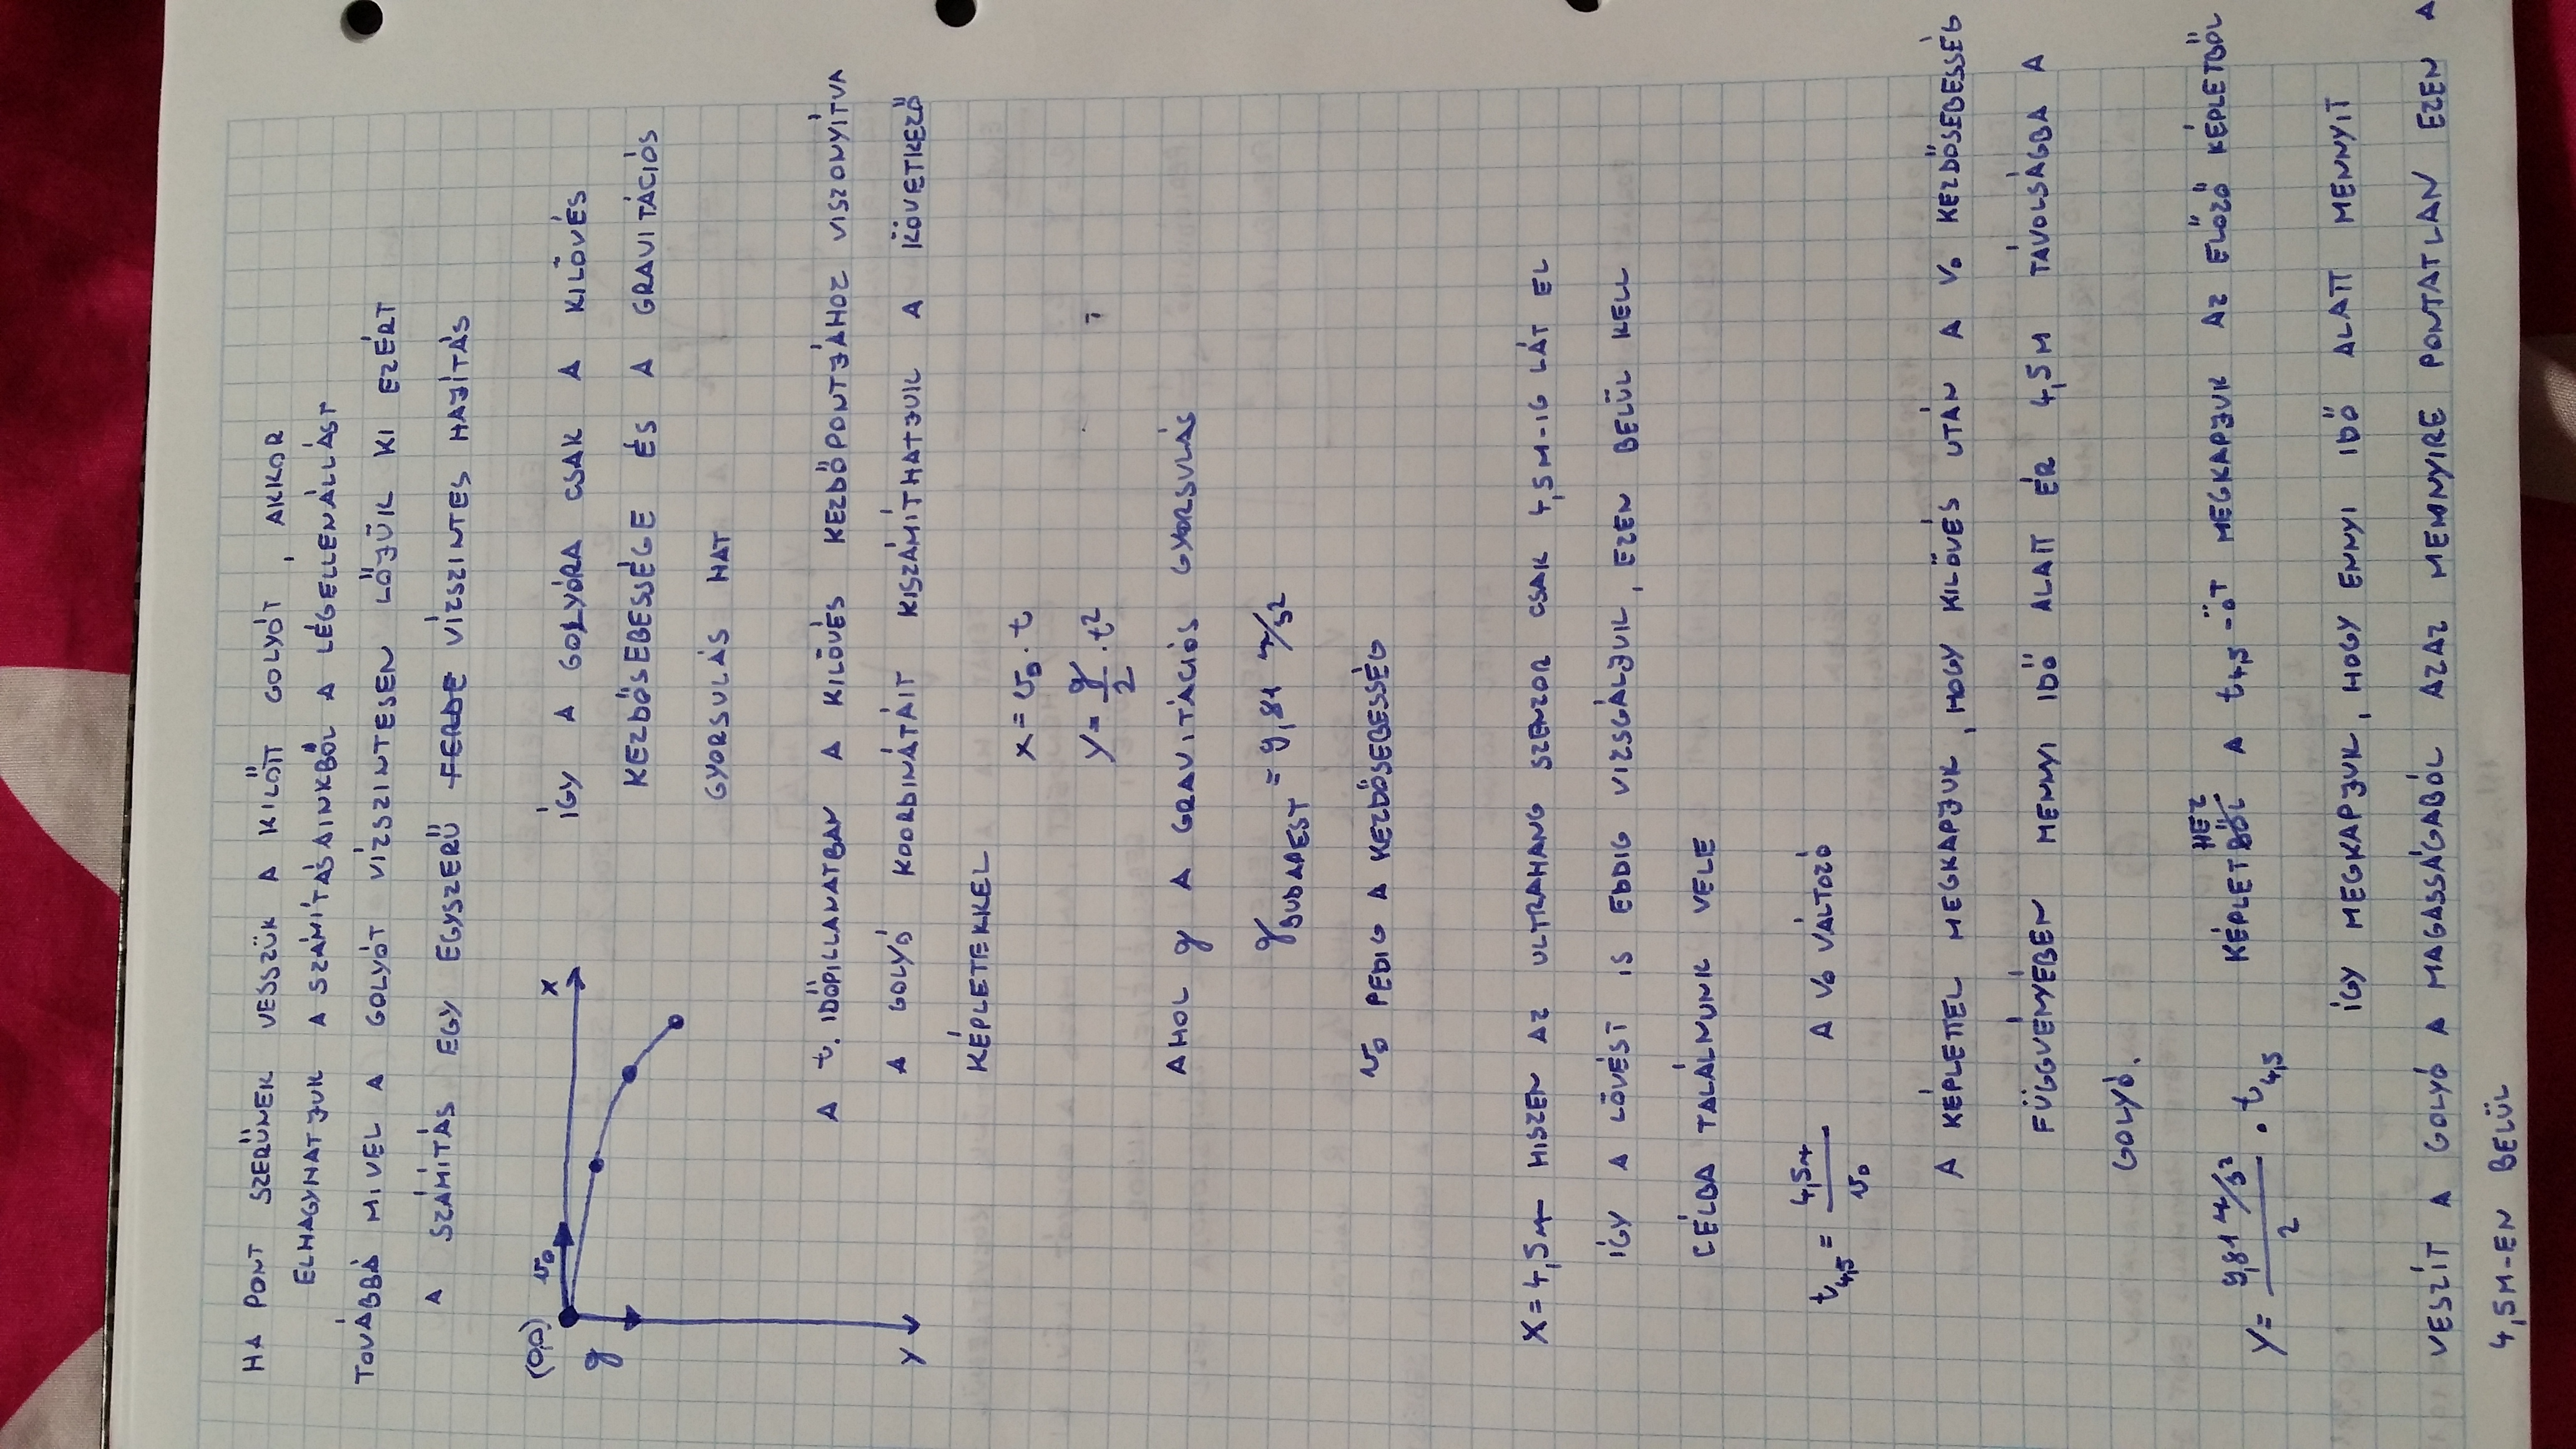 HA PONT SZERŰNEK VESSZÜK A KILŐTT GOLYÓT , AKKOR
ELHAGYHATJUK A SZÁMÍTÁSAINKBÓL A LÉGELLENÁLLÁST
TOVÁBBÁ MIVEL A GOLYÓT VÍZSZINTESEN LŐJÜK KI EZÉRT
A SZÁMÍTÁS EGY EGYSZERŰ FERDE VÍZSZINTES HAJÍTÁS
(0,0) v₀ x
g
y
ÍGY A GOLYÓRA CSAK A KILÖVÉS
KEZDŐSEBESSÉGE ÉS A GRAVITÁCIÓS
GYORSULÁS HAT
A t. IDŐPILLANATBAN A KILÖVÉS KEZDŐPONTJÁHOZ VISZONYÍTVA
A GOLYÓ KOORDINÁTÁIT KISZÁMÍTHATJUK A KÖVETKEZŐ
KÉPLETEKKEL
x = v₀ · t
y = g/2 · t²
AHOL g A GRAVITÁCIÓS GYORSULÁS
g BUDAPEST = 9,81 m/s²
v₀ PEDIG A KEZDŐSEBESSÉG
X = 4,5m HISZEN AZ ULTRAHANG SZENZOR CSAK 4,5M-IG LÁT EL
ÍGY A LÖVÉST IS EDDIG VIZSGÁLJUK, EZEN BELÜL KELL
CÉLBA TALÁLNUNK VELE
t4,5 = 4,5m / v₀ A V₀ VÁLTOZÓ
A KÉPLETTEL MEGKAPJUK , HOGY KILÖVÉS UTÁN A V₀ KEZDŐSEBESSÉG
FÜGGVÉNYÉBEN MENNYI IDŐ ALATT ÉR 4,5M TÁVOLSÁGBA A
GOLYÓ.
y = 9,81 m/s² / 2 · t4,5 KÉPLETBŐL HEZ A t4,5 -ÖT MEGKAPJUK AZ ELŐZŐ KÉPLETBŐL
ÍGY MEGKAPJUK, HOGY ENNYI IDŐ ALATT MENNYIT
VESZÍT A GOLYÓ A MAGASSÁGÁBÓL AZAZ MENNYIRE PONTATLAN EZEN A
4,5M-EN BELÜL